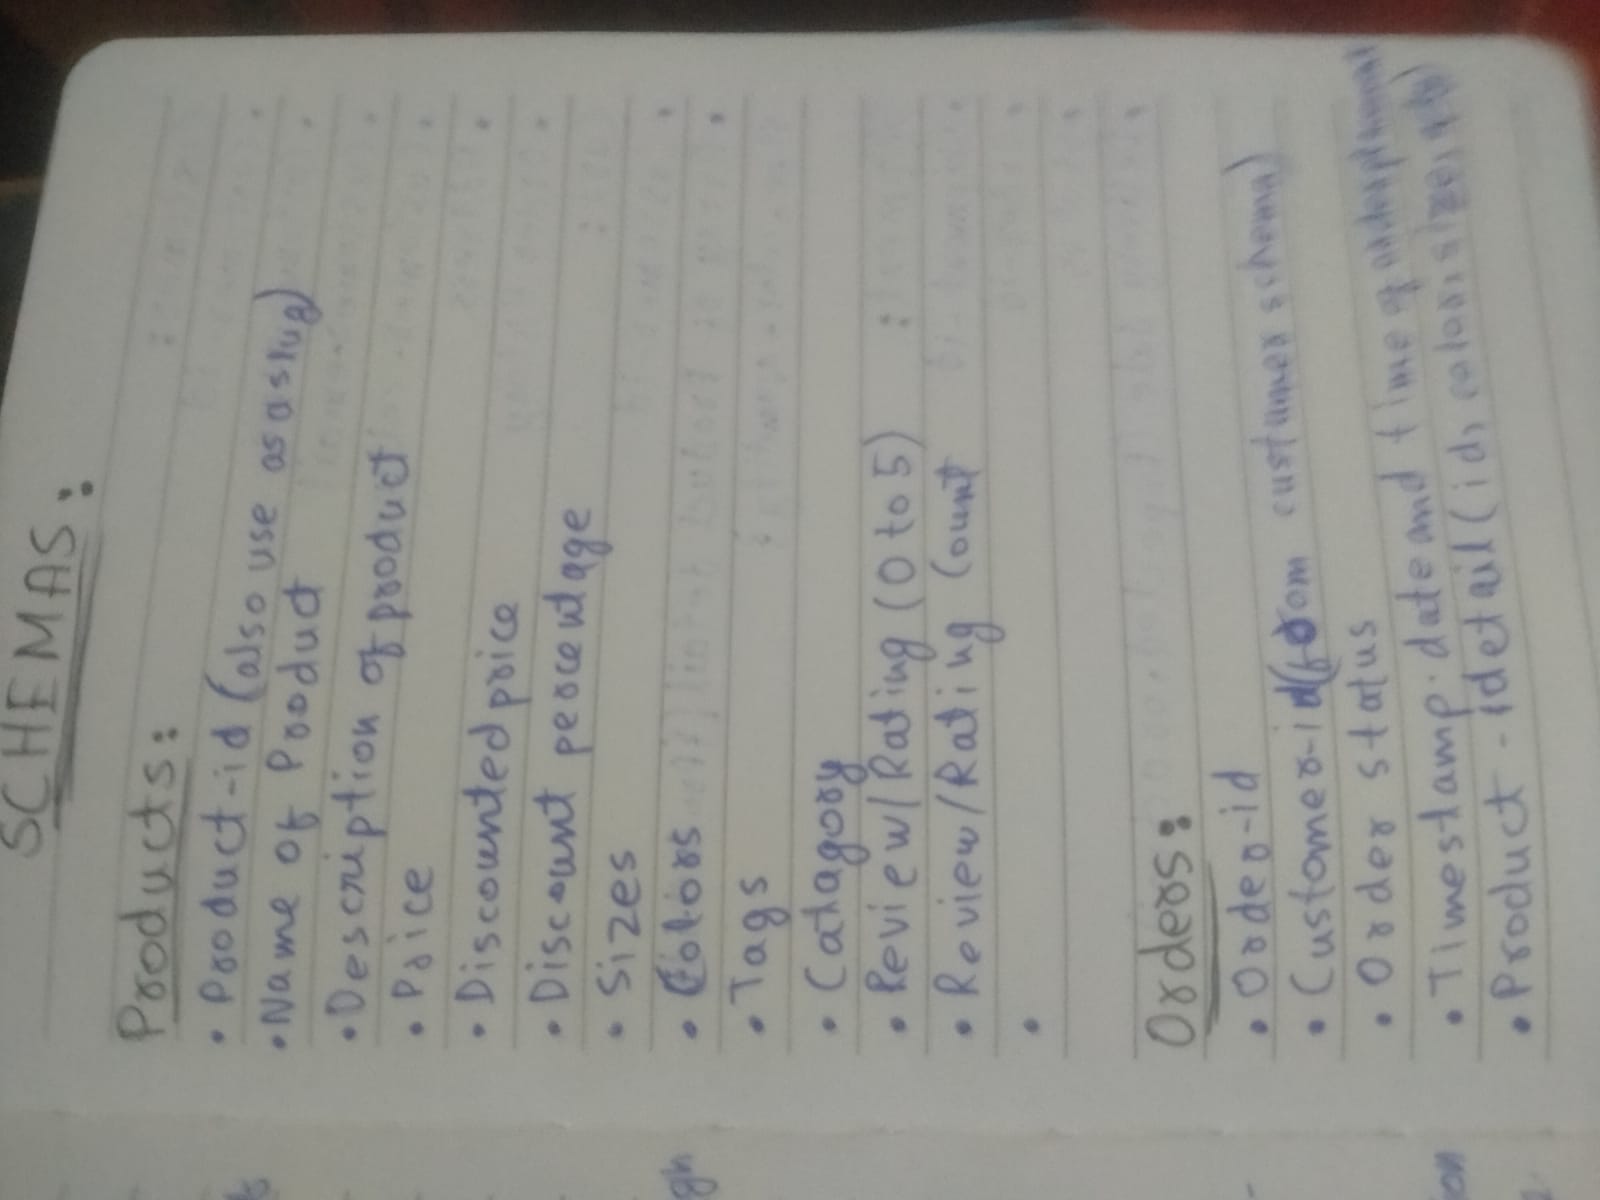 SCHEMAS:
Products:
• Product-id (also use as a slug)
• Name of Product
• Description of product
• Price
• Discounted price
• Discount percentage
• Sizes
• Colors
• Tags
• Catagory
• Review/Rating (0 to 5)
• Review/Rating Count
•
Orders:
• Order-id
• Customer-id (from custumer schema)
• Order status
• Timestamp. date and time of
• Product - detail (id, color, size, qty)
gh
on